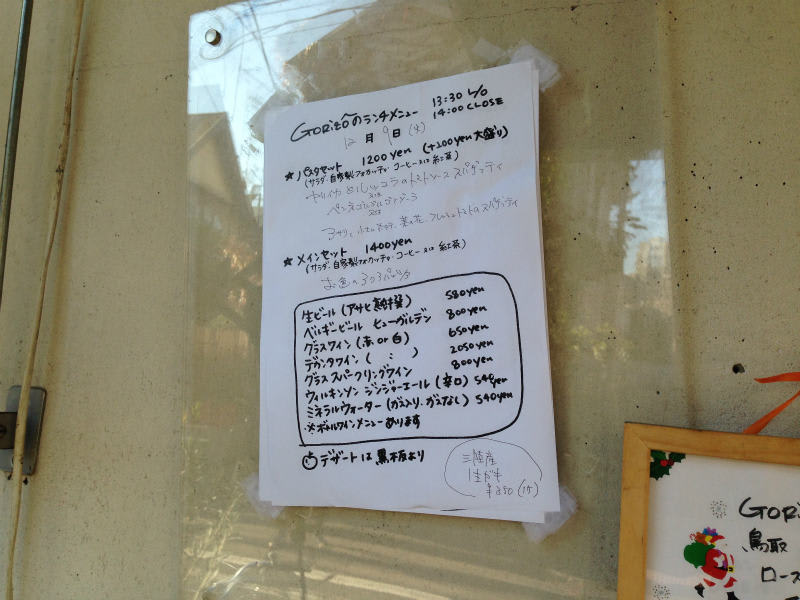 GORIZOのランチメニュー
13:30 L/O
14:00 CLOSE
12月9日(火)
★パスタセット 1200yen (+200yen大盛り)
(サラダ・自家製フォカッチャ・コーヒー又は紅茶)
ルッコラのトマトソース スパゲッティ
又は
ペンネゴルゴンゾーラ
又は
菜の花、フレッシュトマトのスパゲッティ
★メインセット 1400yen
(サラダ・自家製フォカッチャ・コーヒー又は紅茶)
生ビール (アサヒ熟撰) 580yen
ベルギービール ヒューガルデン 800yen
グラスワイン (赤 or 白) 650yen
デカンタワイン ( 〃 ) 2050yen
グラススパークリングワイン 800yen
ウィルキンソン ジンジャーエール (辛口) 540yen
ミネラルウォーター (ガス入り、ガスなし) 540yen
※ボトルワインメニューあります
デザートは黒板より
三陸産
生ガキ
¥350 (1ケ)
GORI
鳥取
ロース